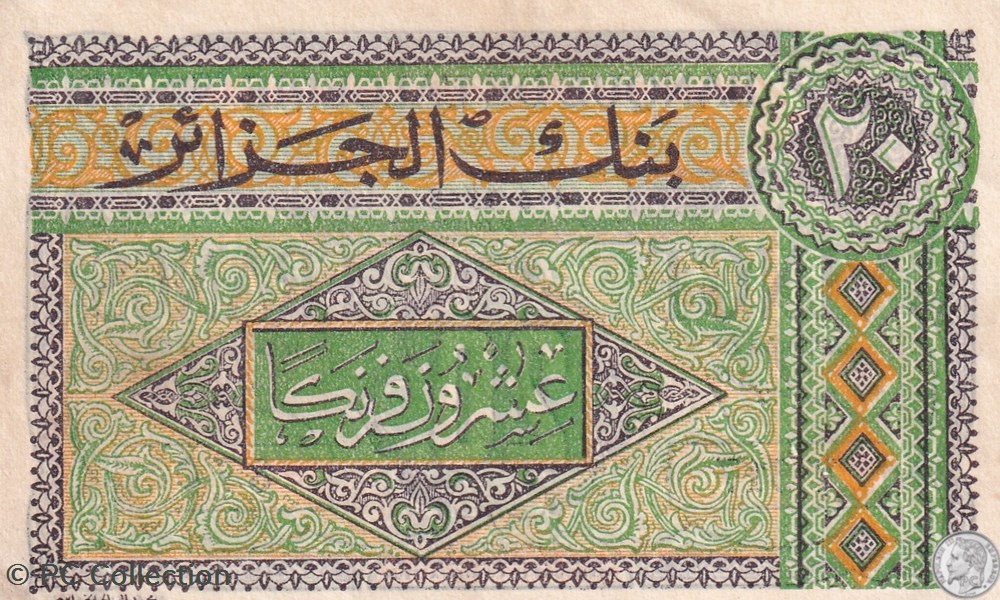 بنك الجزائر
٢٠
عشرون فرنكا
© PC Collection